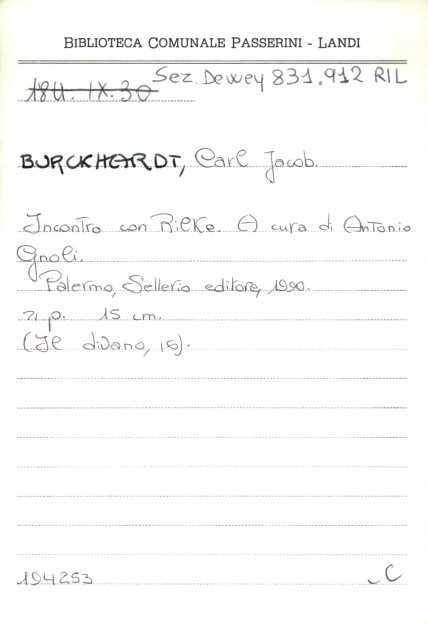 BIBLIOTECA COMUNALE PASSERINI - LANDI
Sez. Dewey 831.912 RIL
184. IX. 30
BURCKHARDT, Carl Jacob.
Incontro con Rilke. A cura di Antonio
Gnoli.
Palermo, Sellerio editore, 1990.
71 p. 15 cm.
(Il divano, 16).
194253
C